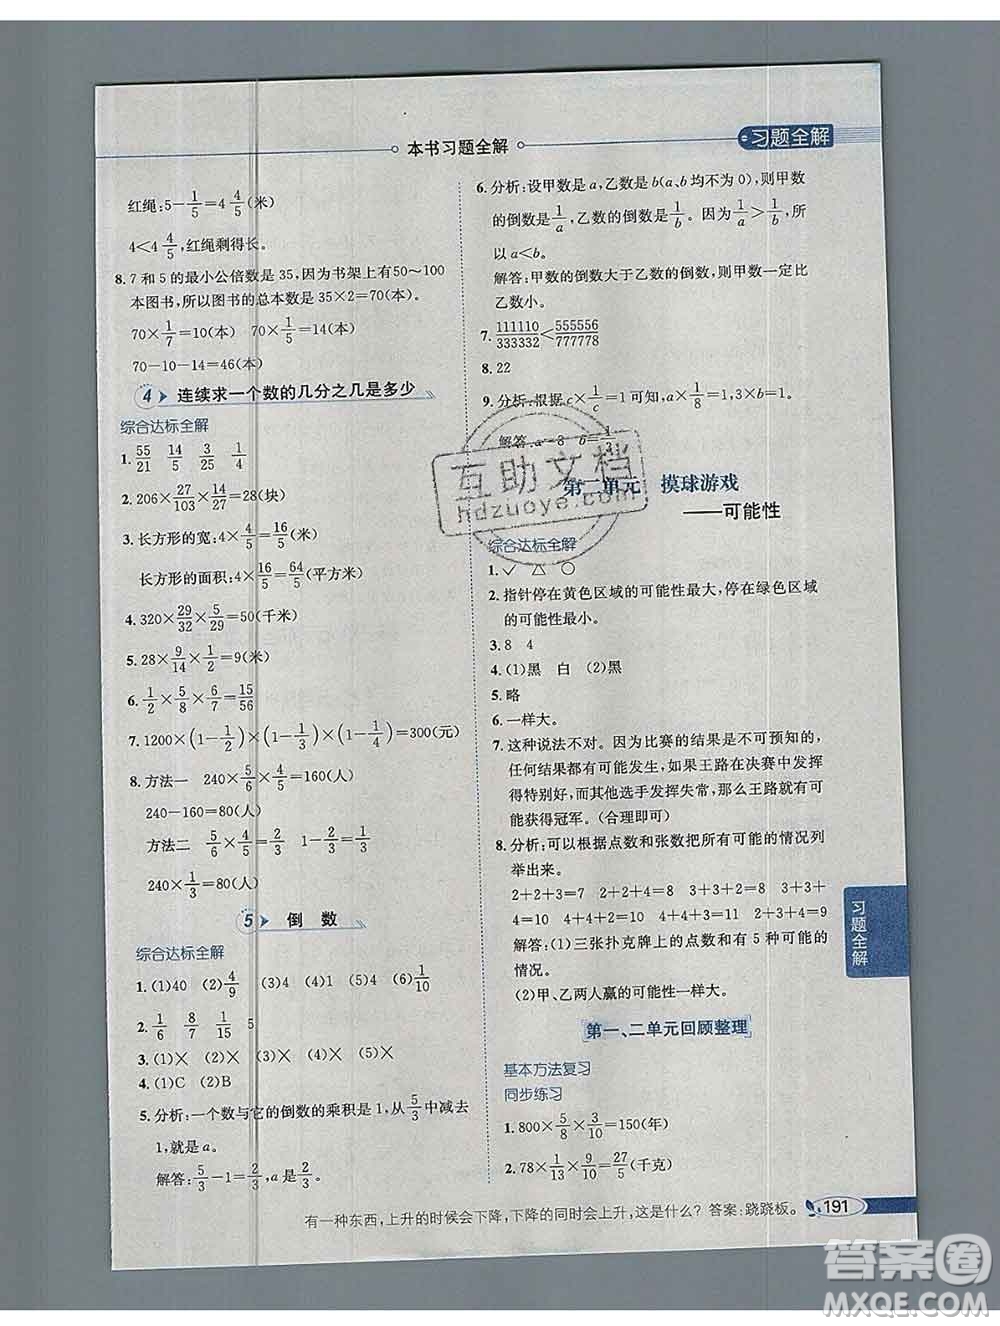 本书习题全解
习题全解
红绳:5-1/5=4 4/5(米)
4<4 4/5,红绳剩得长。
8.7和5的最小公倍数是35,因为书架上有50~100
本图书,所以图书的总本数是35×2=70(本)。
70×1/7=10(本) 70×1/5=14(本)
70-10-14=46(本)
4 连续求一个数的几分之几是多少
综合达标全解
1. 55/21 14/5 3/25 1/4
2. 206×27/103×14/27=28(块)
3. 长方形的宽:4×4/5=16/5(米)
长方形的面积:4×16/5=64/5(平方米)
4. 320×29/32×5/29=50(千米)
5. 28×9/14×1/2=9(米)
6. 1/2×5/8×6/7=15/56
7. 1200×(1-1/2)×(1-1/3)×(1-1/4)=300(元)
8. 方法一 240×5/6×4/5=160(人)
240-160=80(人)
方法二 5/6×4/5=2/3 1-2/3=1/3
240×1/3=80(人)
5 倒 数
综合达标全解
1. (1)40 (2)4/9 (3)4 (4)1 (5)4 (6)1/10
2. 1/6 8/7 1/15 5
3. (1)× (2)× (3)× (4)× (5)×
4. (1)C (2)B
5. 分析:一个数与它的倒数的乘积是1,从5/3中减去
1,就是a。
解答:5/3-1=2/3,a是2/3。
6. 分析:设甲数是a,乙数是b(a、b均不为0),则甲数
的倒数是1/a,乙数的倒数是1/b。因为1/a>1/b,所
以a<b。
解答:甲数的倒数大于乙数的倒数,则甲数一定比
乙数小。
7. 111110/333332<555556/777778
8. 22
9. 分析:根据c×1/c=1可知,a×1/8=1,3×b=1。
解答:a=8 b=1/3
第二单元 摸球游戏
——可能性
综合达标全解
1. ✓ △ ○
2. 指针停在黄色区域的可能性最大,停在绿色区域
的可能性最小。
3. 8 4
4. (1)黑 白 (2)黑
5. 略
6. 一样大。
7. 这种说法不对。因为比赛的结果是不可预知的,
任何结果都有可能发生,如果王路在决赛中发挥
得特别好,而其他选手发挥失常,那么王路就有可
能获得冠军。(合理即可)
8. 分析:可以根据点数和张数把所有可能的情况列
举出来。
2+2+3=7 2+2+4=8 3+3+2=8 3+3+
4=10 4+4+2=10 4+4+3=11 2+3+4=9
解答:(1)三张扑克牌上的点数和有5种可能的
情况。
(2)甲、乙两人赢的可能性一样大。
第一、二单元回顾整理
基本方法复习
同步练习
1. 800×5/8×3/10=150(年)
2. 78×1/13×9/10=27/5(千克)
习题全解
有一种东西,上升的时候会下降,下降的同时会上升,这是什么?答案:跷跷板。
191
互助文档
hdzuoye.com
答案圈
MXQE.COM